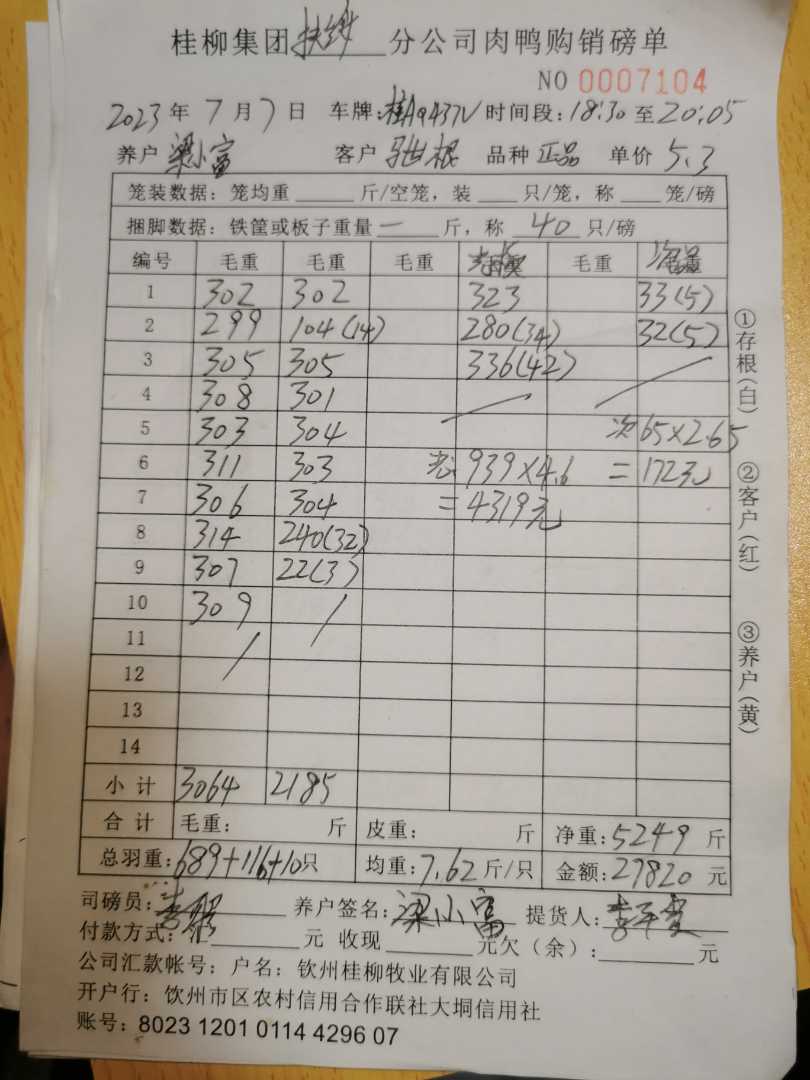 桂柳集团扶绥分公司肉鸭购销磅单
NO 0007104
2023年7月7日 车牌:桂A9437V 时间段:18:30至20:05
养户 梁小富 客户 根 品种 正品 单价 5.3
笼装数据: 笼均重 斤/空笼, 装 只/笼, 称 笼/磅
捆脚数据: 铁筐或板子重量 一 斤, 称 40 只/磅
编号 毛重 毛重 毛重 毛重
1 302 302 323 33(5)
2 299 104(14) 280(34) 32(5)
3 305 305 336(42)
4 308 301
5 303 304 次65×2.65
6 311 303 939×4.6 =172元
7 306 304 =4319元
8 314 240(32)
9 307 22(3)
10 309
11
12
13
14
小计 3064 2185
合计 毛重: 斤 皮重: 斤 净重:5249斤
总羽重:689+116+10只 均重:7.62斤/只 金额:27820元
司磅员: 养户签名:梁小富 提货人:
付款方式:汇 元 收现 元欠(余): 元
公司汇款帐号: 户名: 钦州桂柳牧业有限公司
开户行: 钦州市区农村信用合作联社大垌信用社
账号: 8023 1201 0114 4296 07
①存根(白)
②客户(红)
③养户(黄)